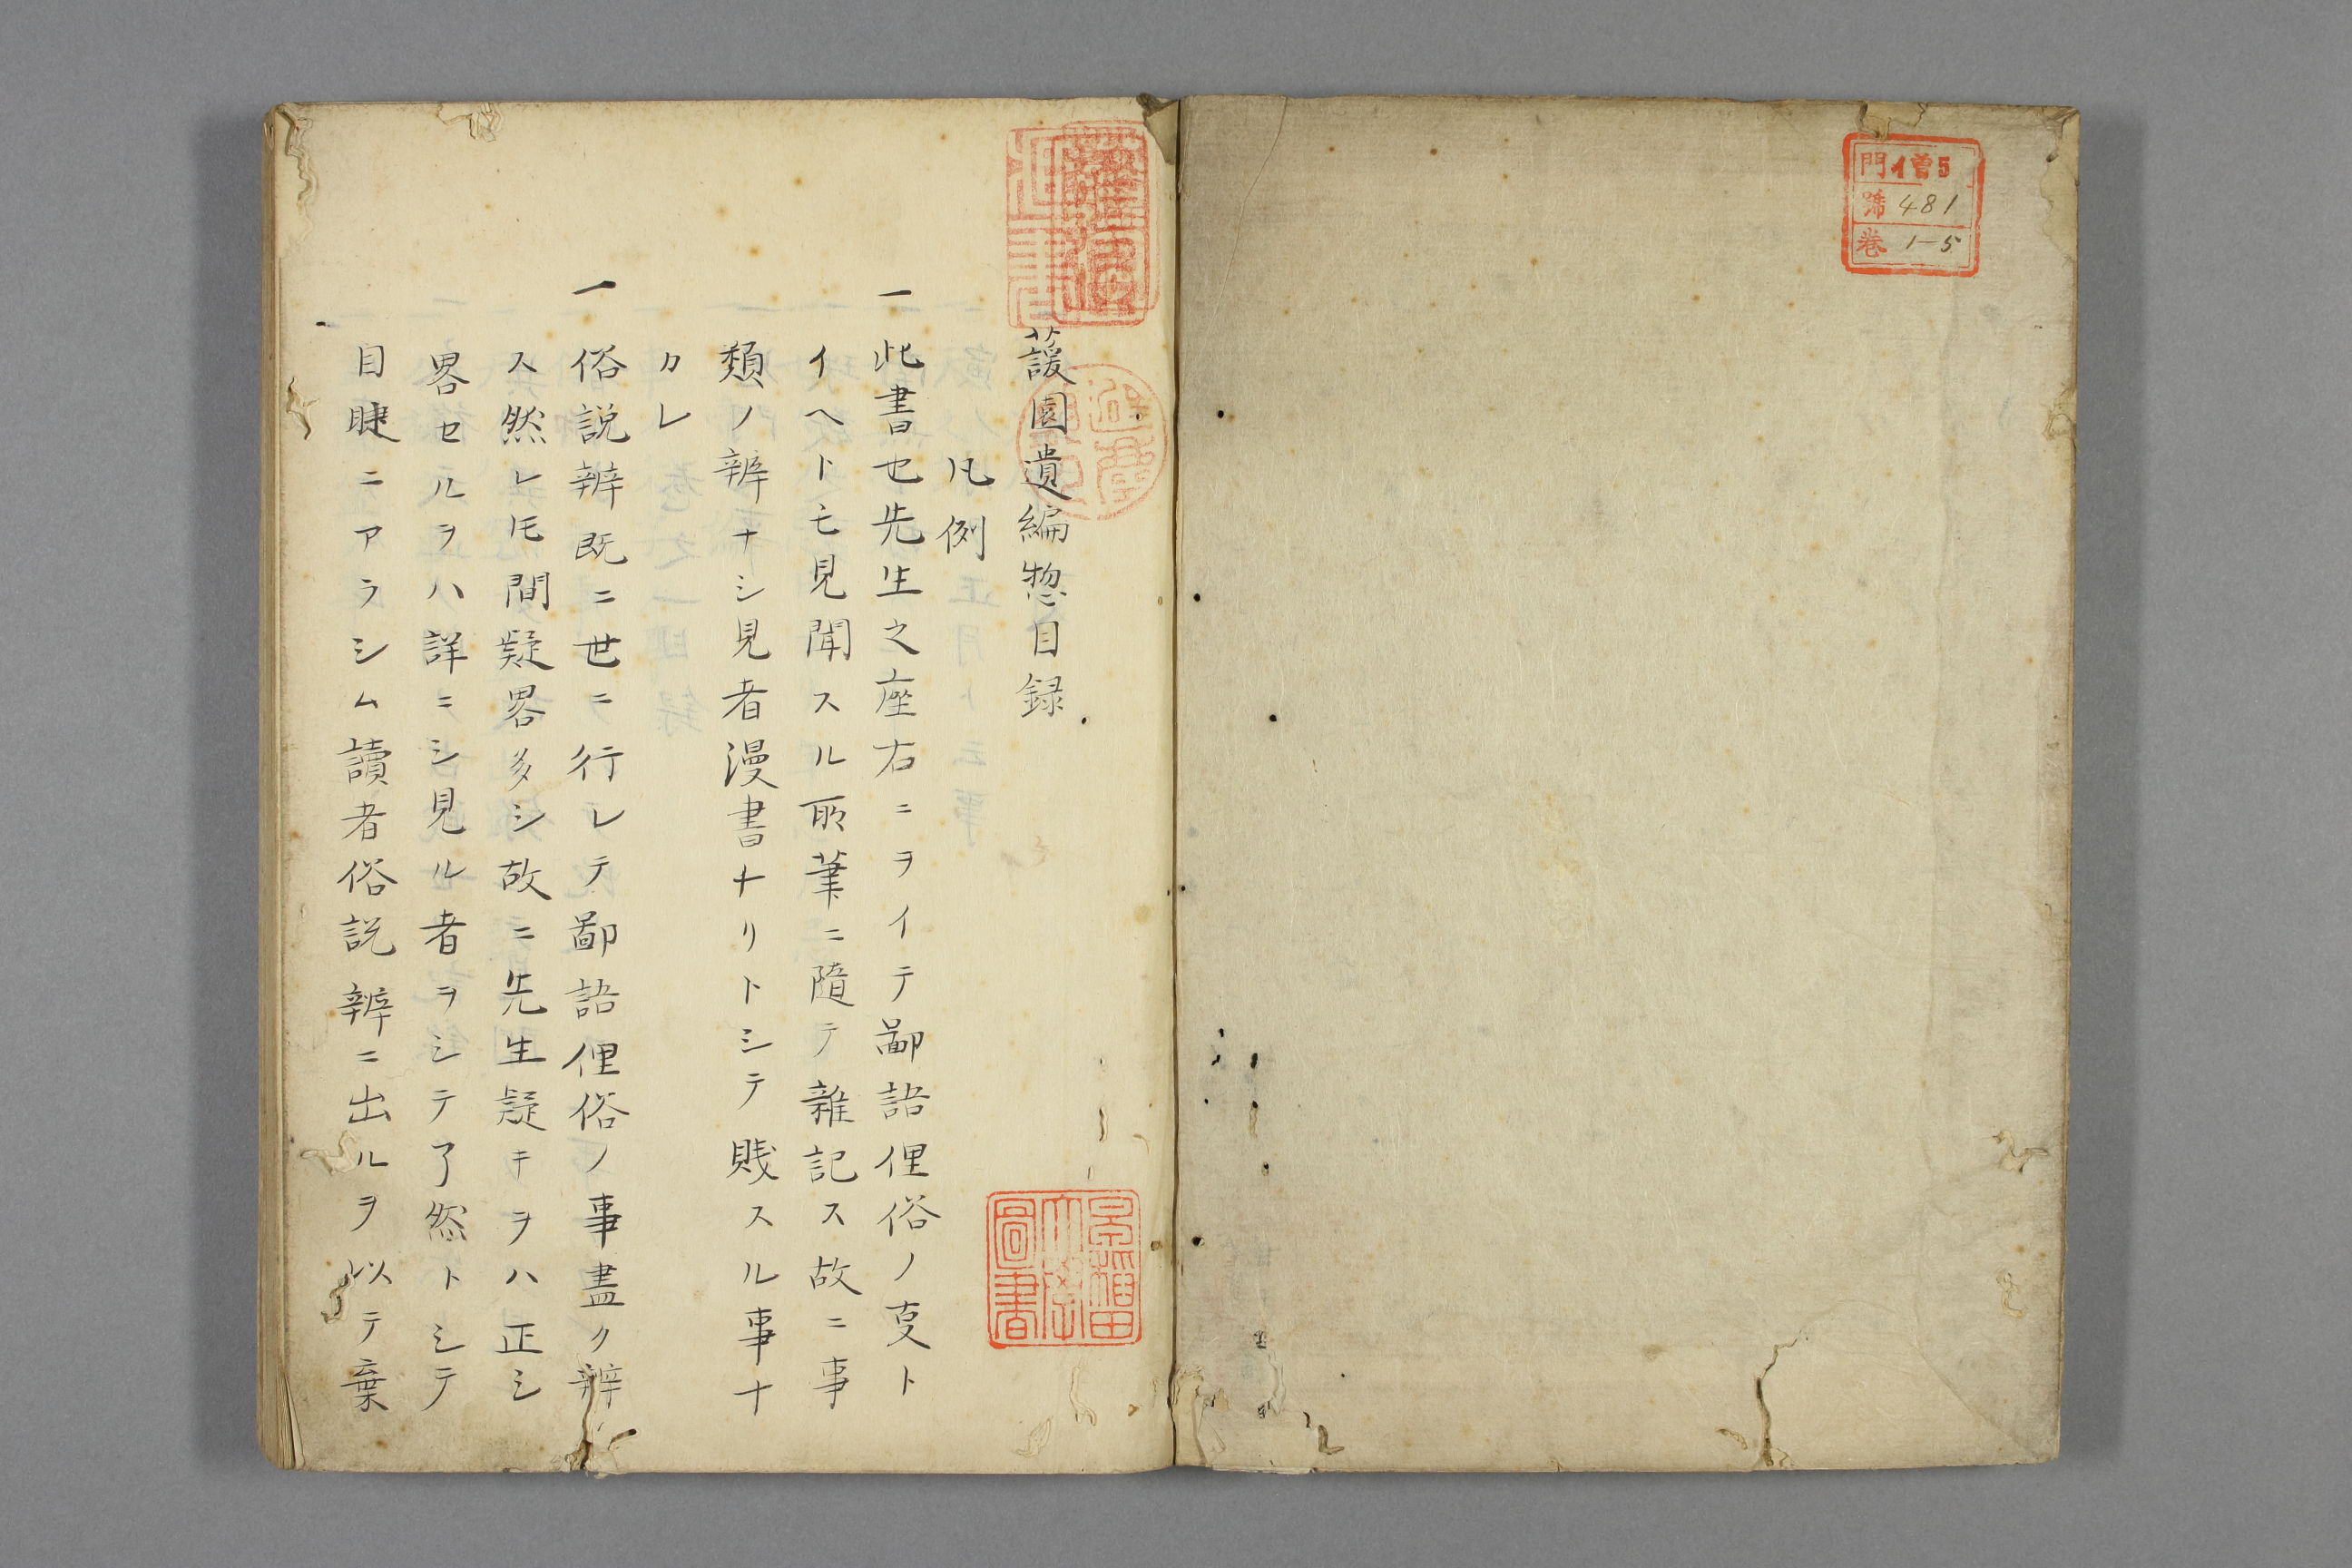 門 イ曽5
號 481
巻 1-5
蘐園遺編惣目録
凡例
一 此書也先生之座右ニヲイテ鄙語俚俗ノ叓ト
イヘトモ見聞スル所筆ニ隨テ雜記ス故ニ事
類ノ辨ナシ見者漫書ナリトシテ賎スル事ナ
カレ
一 俗説辨既ニ世ニ行レテ鄙語俚俗ノ事盡ク辨
ス然レ𪜈間疑畧多シ故ニ先生疑キヲハ正シ
畧セルヲハ詳ニシ見ル者ヲシテ了然トシテ
目睫ニアラシム讀者俗説辨ニ出ルヲ以テ棄
早稲田
大學
圖書